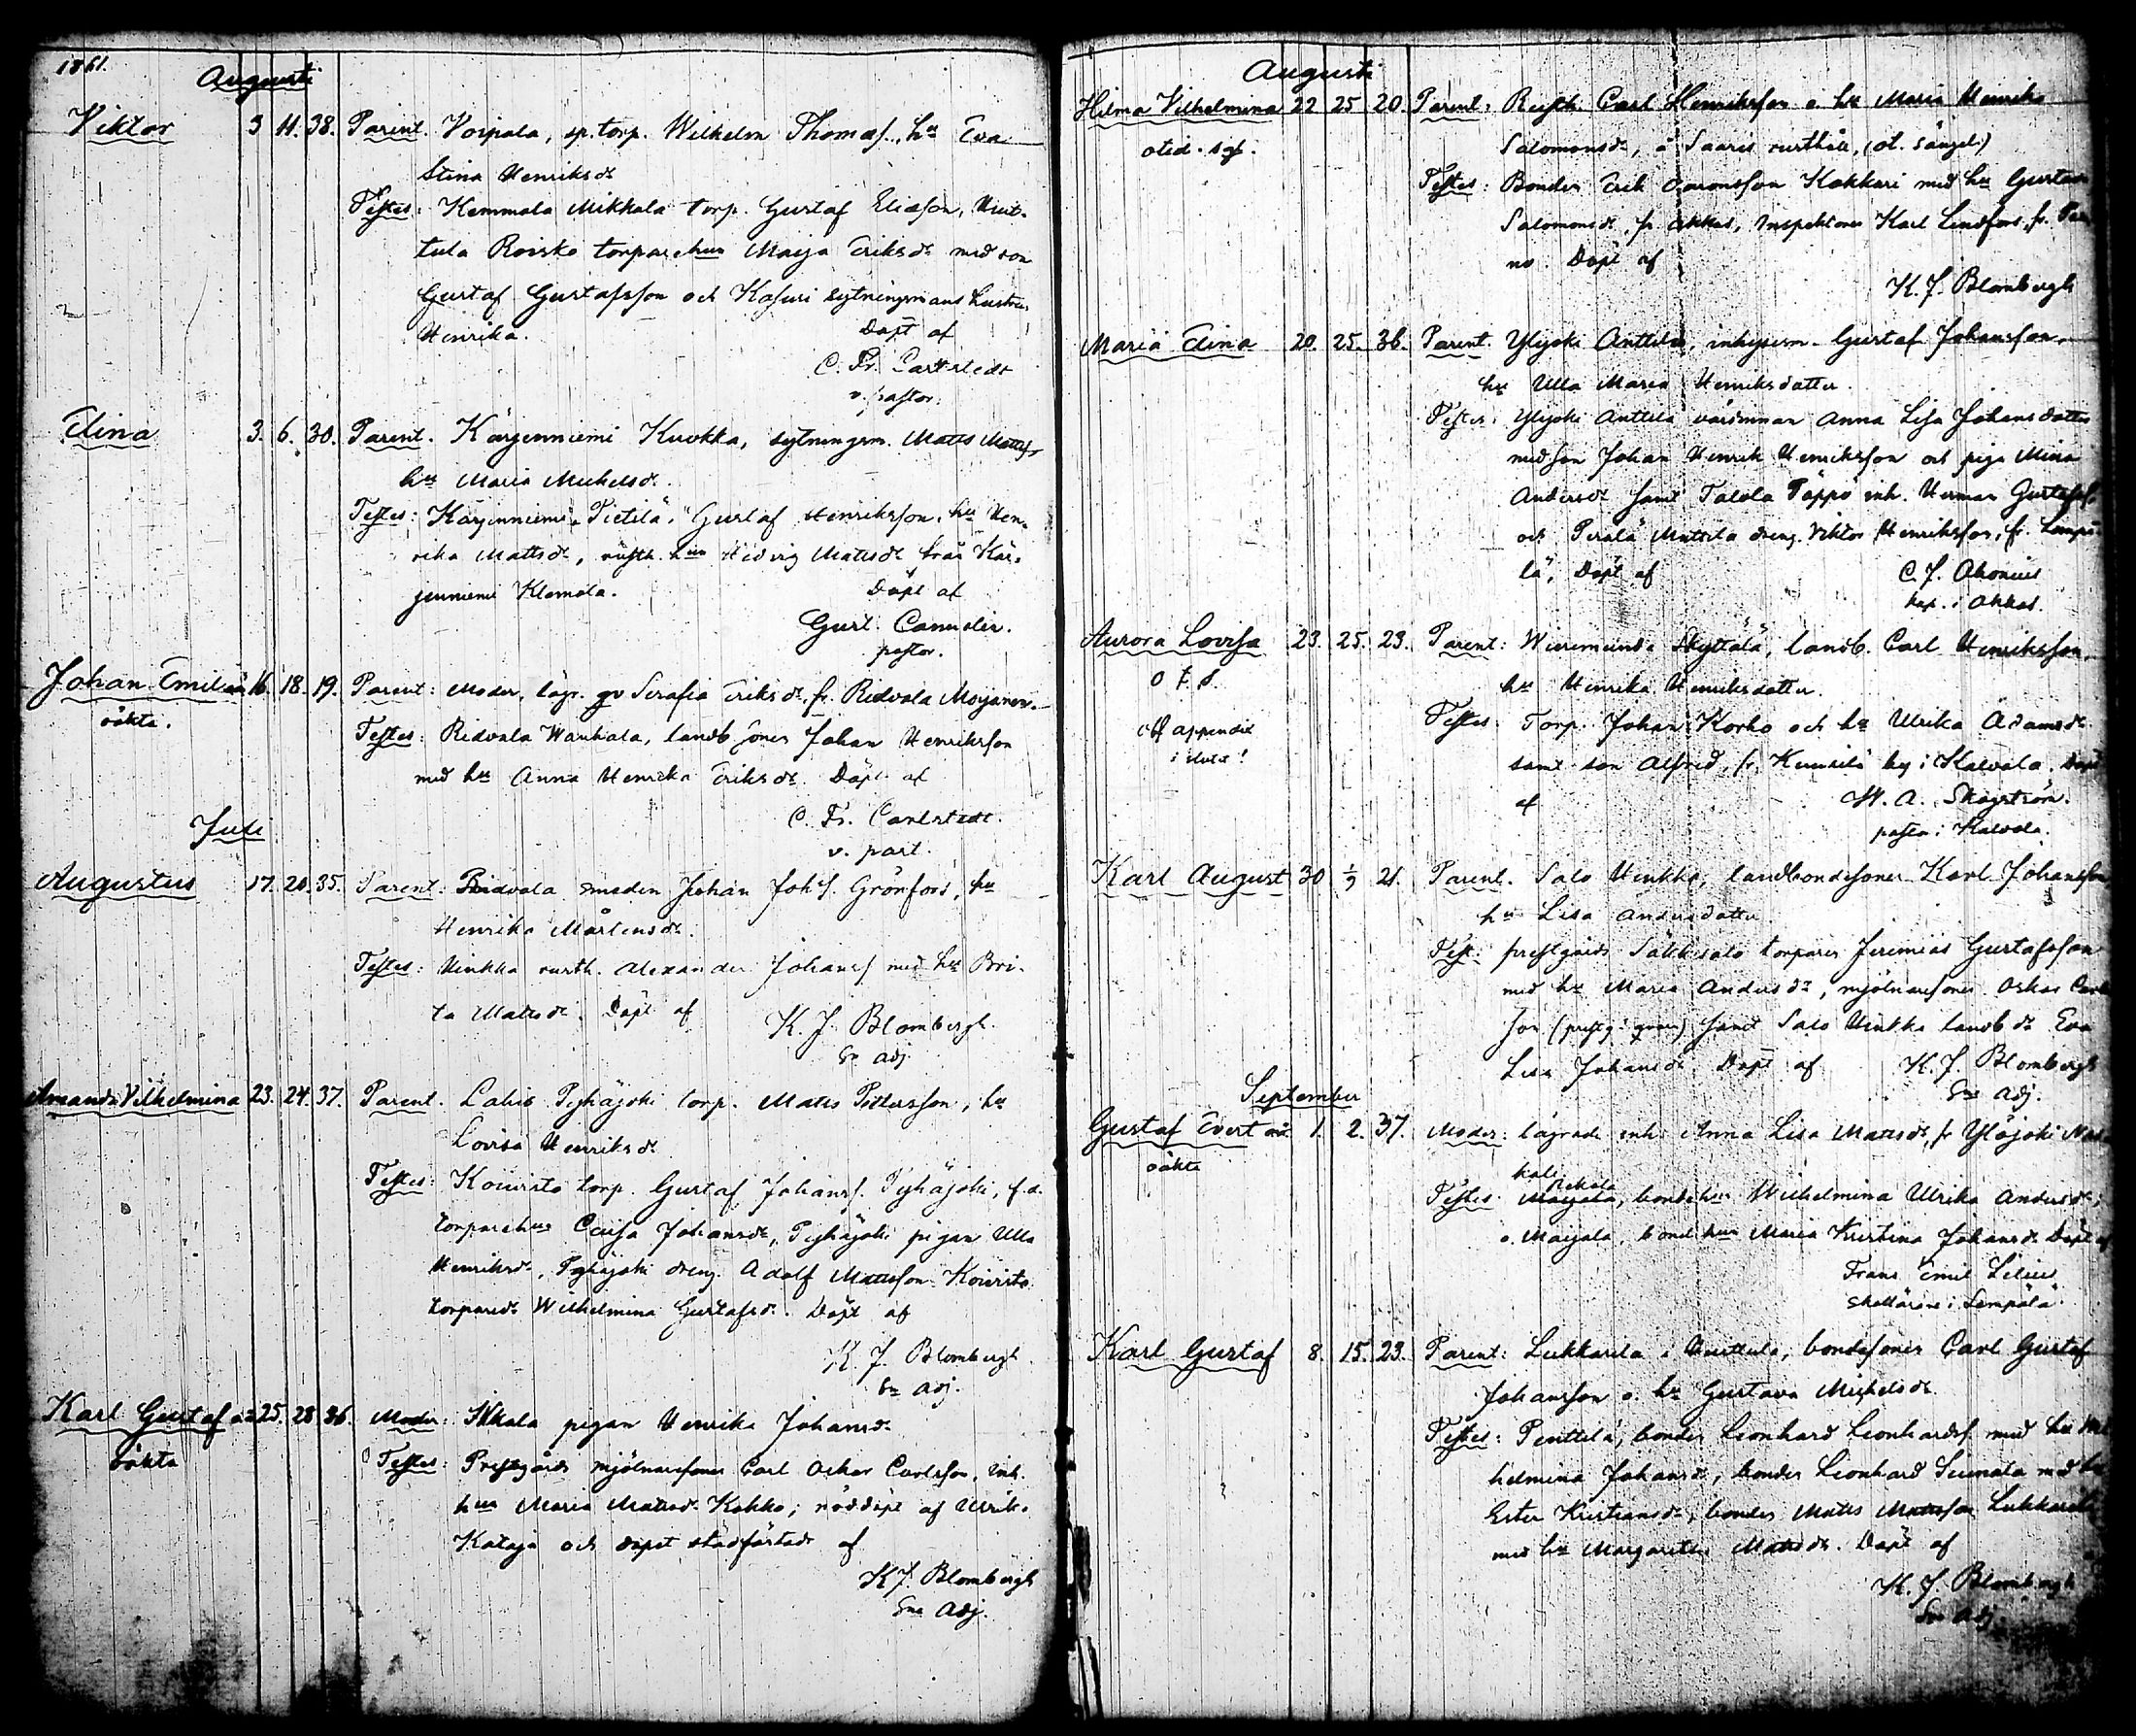 1861.
Augusti
Viktor 3 11. 38. Parent. Voipala, sp. torp. Wilhelm Thomas., hu Eva
Stina Henriksdr
Testes: Kemmola Mikkala torp. Gustaf Eliasson, Hut-
tula Roisko torparehun Maija Eriksdr med son
Gustaf Gustafsson och Kasuri sytningsmans hustru
Henrika. Döpt af
C. Fr. Carlstedt
v. pastor.
Elina 3. 6. 30. Parent. Kärjenniemi Kuokka, sytningsm. Matts Mattss.
hu Maria Michelsdr.
Testes: Kärjenniemi Pietilä, Gustaf Henriksson, hu Hen-
rika Mattsdr, rusth. hun Hedvig Mattsdr från Kär-
jenniemi Klemola. Döpt af
Gust. Canuolin.
pastor.
Johan Emilian 16. 18. 19. Parent: Moder, lägr. qv Serafia Eriksdr, fr. Ridvala Moijanen.
oäkta. Testes: Ridvala Wanhala, landb sonen Johan Henriksson
med hu Anna Henrika Eriksdr. Döpt af
C. Fr. Carlstedt.
v. past.
Juli
Augustus 17. 20. 35. Parent: Ridvala smeden Johan Johs. Grönfors, hu
Henrika Mårtensdr.
Testes: Hinkka rusth. Alexander Johanss. med hu Bri-
ta Mattsdr. Döpt af K. J. Blombergh.
Sn adj.
Amanda Vilhelmina 23. 24. 37. Parent. Lahis Pyhäjoki torp. Matts Pettersson, hu
Lovisa Henriksdr
Testes: Koivisto torp. Gustaf Johanss. Pyhäjoki, f.d.
torparehun Caisa Johansdr, Pyhäjoki pigan Ulla
Henriksdr, Pyhäjoki dreng. Adolf Mattsson Koivisto
torparedr Wilhelmina Gustafsdr. Döpt af
K. J. Blombergh
Sn adj.
Karl Gustaf 25. 28. 36. Moder: pigan Henrika Johansdr
oäkta Testes: Prestgårds mjölnaresonen Carl Oskar Carlsson, Inh.
hun Maria Mattsdr Kokko; nöddöpt af Ulrik.
Kataja och dopet stadfästadt af
K J. Blombergh
Sn adj.
Augusti
Hilma Vilhelmina 22 25 20. Parent: Rusth. Carl Henriksson o hu Maria Henrika
Salomonsdr, å Saaris rusthåll, (ot. sängel.)
Testes: Bonden Erik Aaronsson Kokkari med hu Gustava
Salomonsdr, fr. Akkas, Inspektoren Karl Lindfors, fr.
no. Döpt af
K. J. Blombergh
Maria Elina 20. 25. 36. Parent. Ylijoki Anttila, inhysesm. Gustaf Johansson,
hu Ulla Maria Henriksdotter.
Testes: Ylijoki Anttila värdinnan Anna Lisa Johansdotter
med son Johan Henrik Henriksson och piga Mina
Andersdr samt Talola Pappo inh. Herman Gustafss.
och Perälä Mattila dreng. Viktor Henriksson, fr. Lempä
lä, Döpt af C. J. Ahonius
kap. i Akkas.
Aurora Lovisa 23. 25. 23. Parent: Wiiremunda Skyttälä, landb. Carl Henriksson,
hu Henrika Henriksdotter.
Cfr appendix Testes: Torp. Johan Korko och hu Ulrika Adamsdr
i slutet! samt son Alfred, fr. by i Kalvola. Döpt
af W. A. Skogström.
pastor i Kalvola.
Karl August 30 1/9 21. Parent. Salo Hinkka, landbondesonen Karl Johansson
hu Lisa Andersdotter.
Test: prestgårds Säkkisalo torparen Jeremias Gustafsson
med hu Maria Andersdr, mjölnaresonen Oskar Carls
son samt Salo Hinkka landb dr Eva
Lisa Johansdr Döpt af K. J. Blombergh
Sn adj.
September
Gustaf Evert 1. 2. 37. Moder: lägrade inh. Anna Lisa Mattsdr, fr Ylöjoki
oäkta kali
Testes: Maijala, bondehun Wilhelmina Ulrika Andersdr,
o. Maijala, bondehun Maria Kristina Johansdr. Döpt af
Frans Emil Lilius
skollärare i Lempälä.
Karl Gustaf 8. 15. 23. Parent: Lukkarila i Huittula, bondesonen Carl Gustaf
Johansson o. hu Gustava Michelsdr
Testes: Penttilä, bonden Leonhard Leonhardss. med hu Wil
helmina Johansdr, bonden Leonhard Suinala med hu
Ester Kristiansdr, bonden Matts Mattsson Lukkarila
med hu Margaretha Mattsdr. Döpt af
K. J. Blombergh
Sn adj.